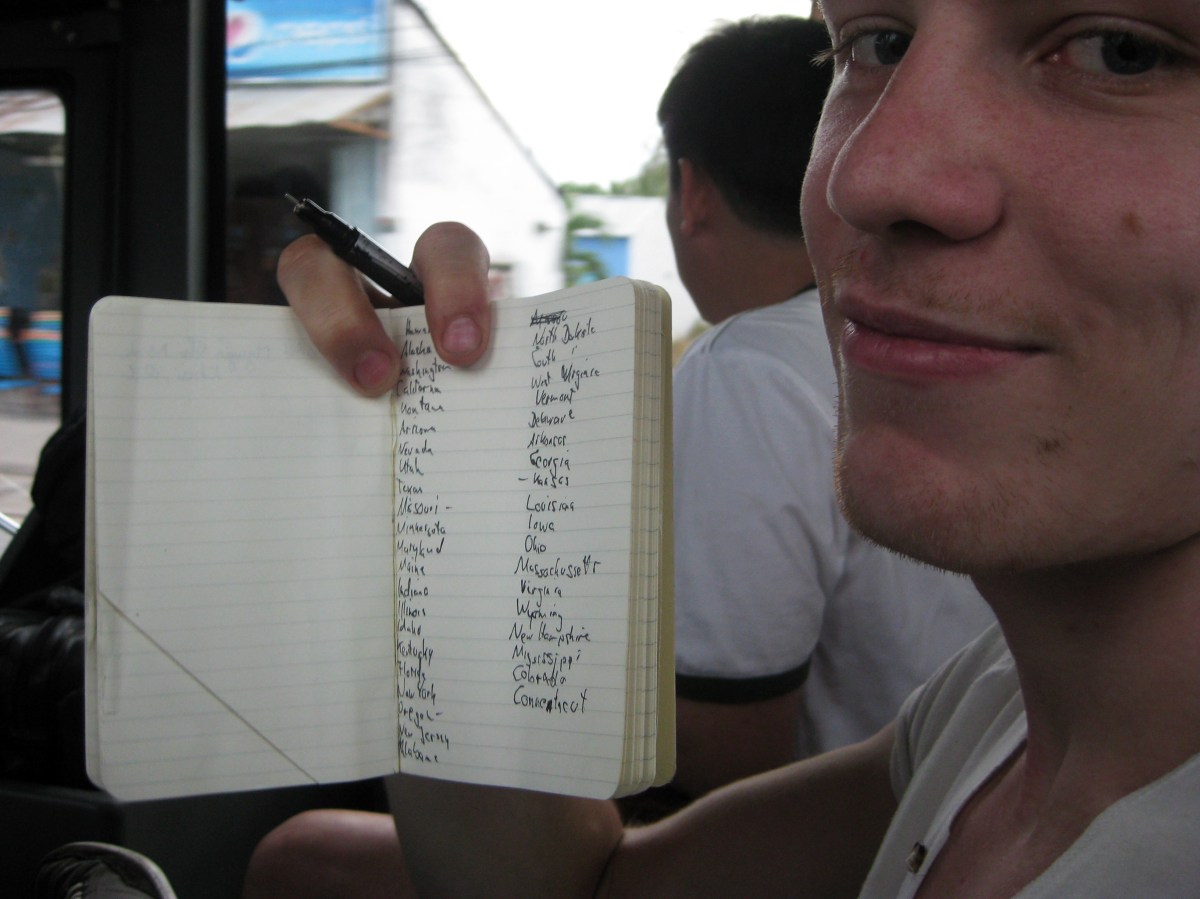 Alaska
Washington
California
Montana
Arizona
Nevada
Utah
Texas
Missouri -
Minnesota
Maryland
Maine
Indiana
Illinois
Idaho
Kentucky
Florida
New York
Oregon -
New Jersey
Alabama
North Dakota
South "
West Virginia
Vermont
Delaware
Arkansas
Georgia
- Kansas
Louisina
Iowa
Ohio
Massachussetts
Virginia
Wyoming
New Hampshire
Mississippi
Colorado
Connecticut